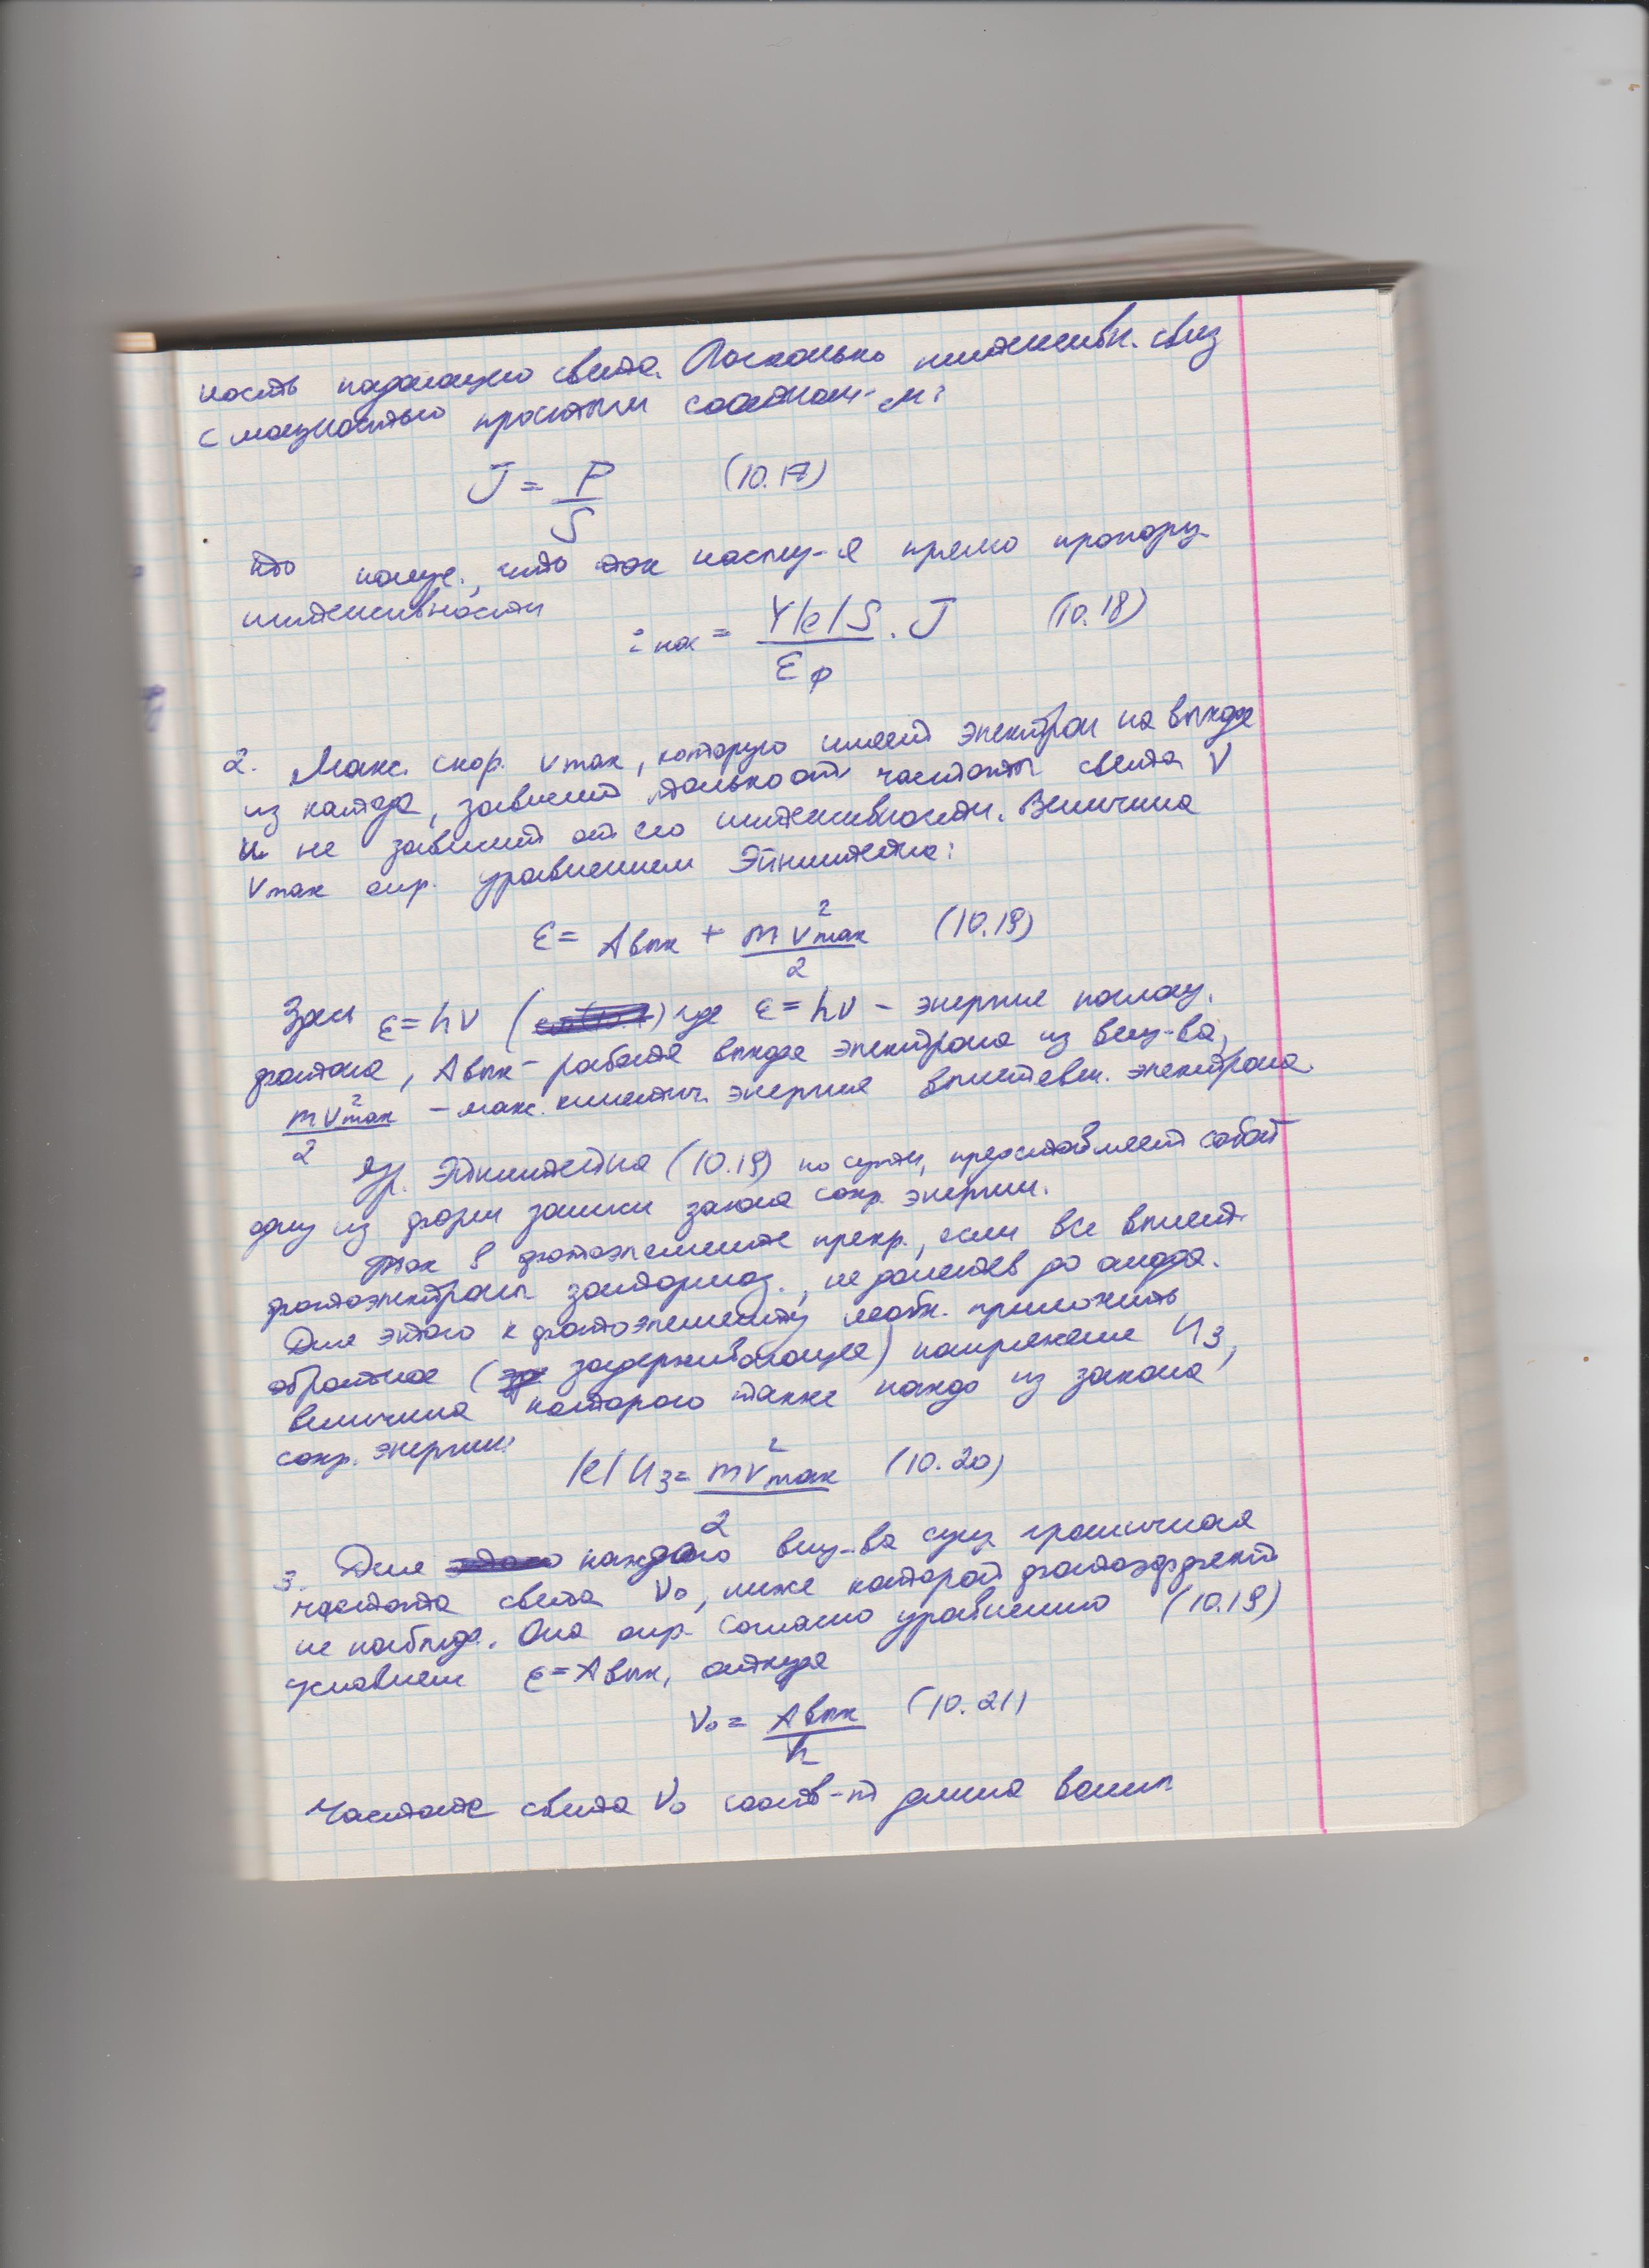 ность падающего света. Поскольку интенсивн. связ
с мощностью простым соотнош-м:
J = P/S (10.17)
то получ., что ток насыщ-я прямо пропорц.
интенсивности
i нас = Y|e|S/εф · J (10.18)
2. Макс. скор. vmax, которую имеет электрон на выходе
из катода, зависит только от частоты света ν
и не зависит от его интенсивности. Величина
vmax опр. уравнением Эйнштейна:
ε = Aвых + mv²max/2 (10.19)
Здесь ε = hν ( ) где ε = hν – энергия поглощ.
фотона, Aвых – работа выхода электрона из вещ-ва,
mv²max/2 – макс. кинетич. энергия вылетевш. электрона.
Ур. Эйнштейна (10.19) по сути, представляет собой
одну из форм записи закона сохр. энергии.
Ток в фотоэлементе прекр., если все вылет.
фотоэлектроны затормоз., не долетев до анода.
Для этого к фотоэлементу необх. приложить
обратное (задерживающее) напряжение Uз,
величина которого также находо из закона
сохр. энергии:
|e|Uз = mv²max/2 (10.20)
3. Для каждого вещ-ва сущ. граничная
частота света ν₀, ниже которой фотоэффект
не наблюд. Она опр. согласно уравнению (10.19)
условием ε = Aвых, откуда
ν₀ = Aвых/h (10.21)
Частоте света ν₀ соотв-т длина волны